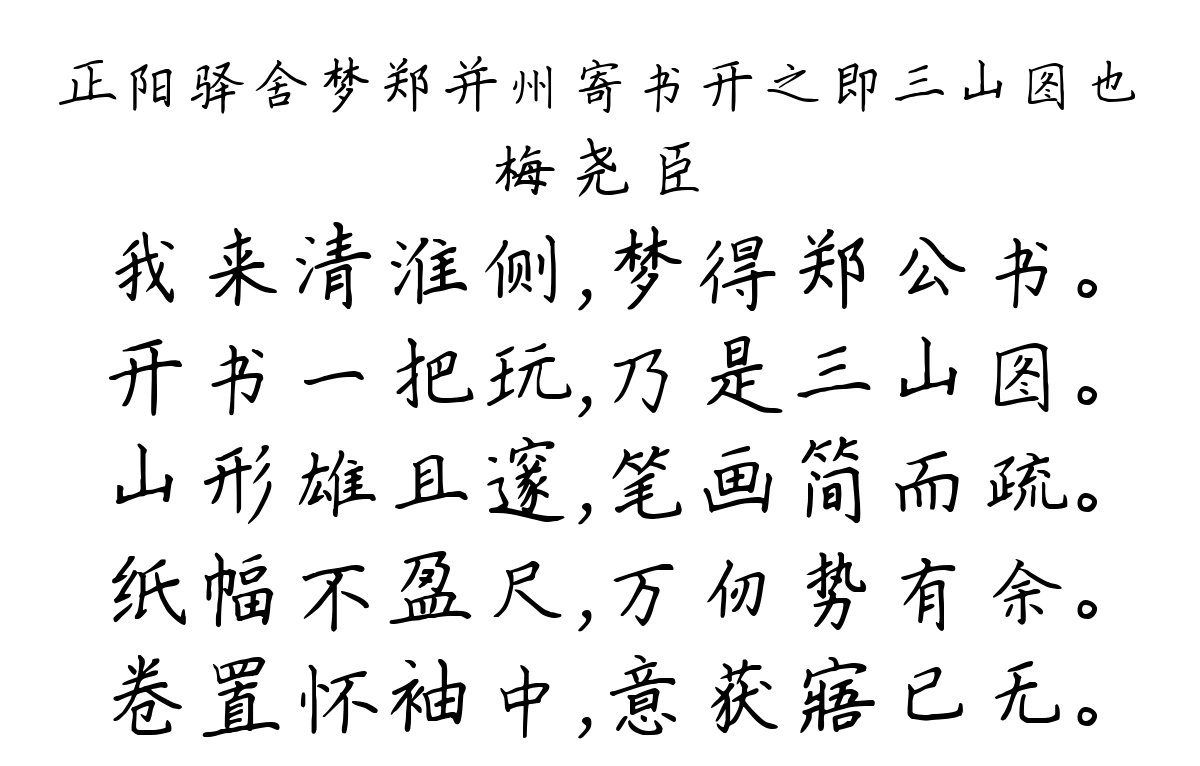 正阳驿舍梦郑并州寄书开之即三山图也
梅尧臣
我来清淮侧,梦得郑公书。
开书一把玩,乃是三山图。
山形雄且邃,笔画简而疏。
纸幅不盈尺,万仞势有余。
卷置怀袖中,意获寤已无。